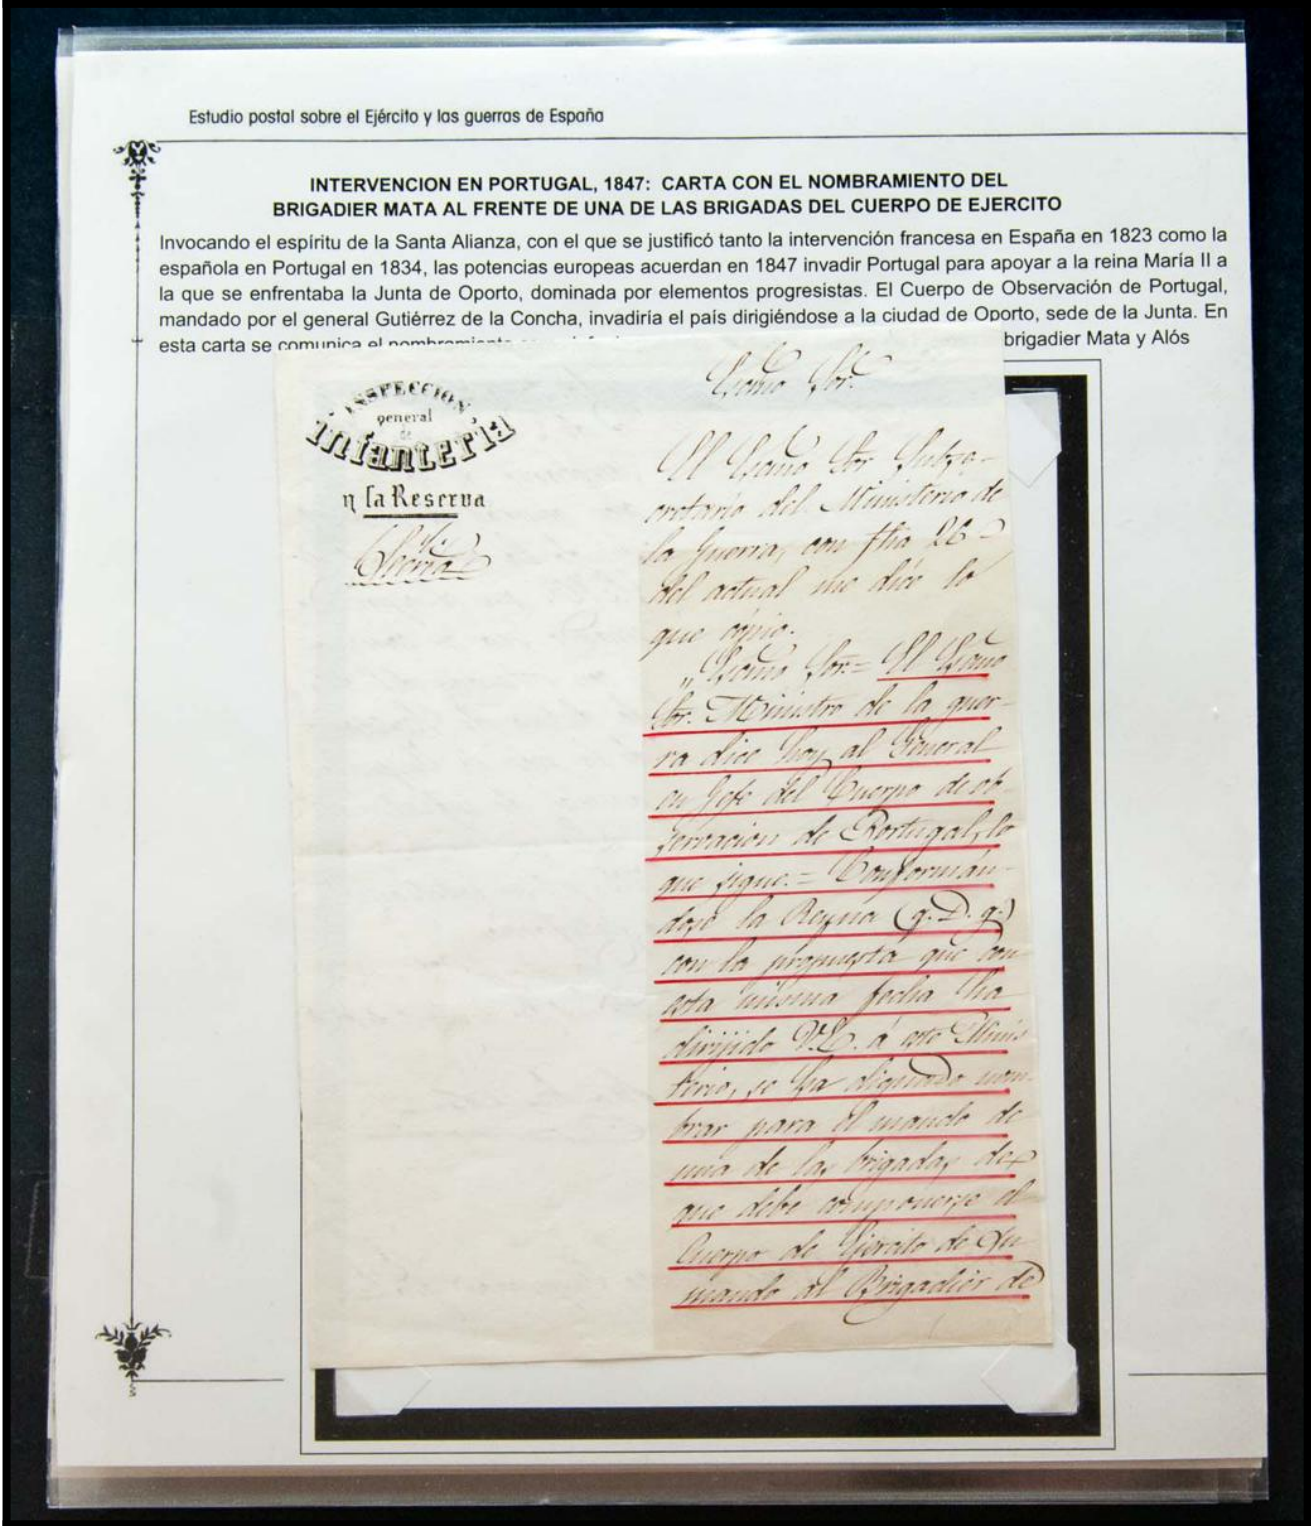 Estudio postal sobre el Ejército y las guerras de España
INTERVENCION EN PORTUGAL, 1847: CARTA CON EL NOMBRAMIENTO DEL
BRIGADIER MATA AL FRENTE DE UNA DE LAS BRIGADAS DEL CUERPO DE EJERCITO
Invocando el espíritu de la Santa Alianza, con el que se justificó tanto la intervención francesa en España en 1823 como la
española en Portugal en 1834, las potencias europeas acuerdan en 1847 invadir Portugal para apoyar a la reina María II a
la que se enfrentaba la Junta de Oporto, dominada por elementos progresistas. El Cuerpo de Observación de Portugal,
mandado por el general Gutiérrez de la Concha, invadiría el país dirigiéndose a la ciudad de Oporto, sede de la Junta. En
esta carta se comunica el nombramiento brigadier Mata y Alós
INSPECCION
general
de
Infantería
y la Reserva
Excmo Sor.
El Excmo Sor Subse-
cretario del Ministerio de
la Guerra, con fha 26
del actual me dice lo
que cópio.
"Excmo Sor.= El Excmo
Sor. Ministro de la guer-
ra dice hoy al General
en Gefe del Cuerpo de ob-
servacion de Portugal, lo
que sigue.= Conformán-
dose la Reyna (q. D. g.)
con la propuesta que con
esta misma fecha ha
dirijido V.E. á este Minis
terio, se ha dignado nom-
brar para el mando de
una de las brigadas de
que debe componerse el
Cuerpo de Ejercito de su
mando al Brigadier de